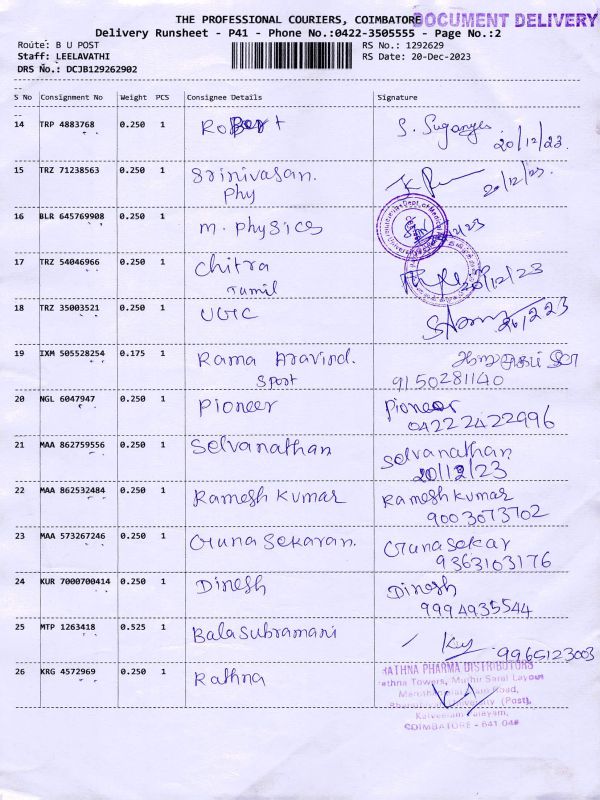 THE PROFESSIONAL COURIERS, COIMBATORE
DOCUMENT DELIVERY
Delivery Runsheet - P41 - Phone No.:0422-3505555 - Page No.:2
Route: B U POST
RS No.: 1292629
Staff: LEELAVATHI
RS Date: 20-Dec-2023
DRS No.: DCJB129262902
S No Consignment No Weight PCS Consignee Details Signature
14 TRP 4883768 0.250 1 Robert S. Suganya
20/12/23.
15 TRZ 71238563 0.250 1 Srinivasan.
Phy 20/12/23.
16 BLR 645769908 0.250 1 M. Physics
17 TRZ 54046966 0.250 1 Chitra
Tamil 20/12/23
18 TRZ 35003521 0.250 1 UGC
20/12/23
19 IXM 505528254 0.175 1 Rama Aravind.
Sport 9150281140
20 NGL 6047947 0.250 1 Pioneer Pioneer
0422 2422996
21 MAA 862759556 0.250 1 Selvanathan Selvanathan
20/12/23
22 MAA 862532484 0.250 1 Ramesh Kumar Ramesh Kumar
9003073702
23 MAA 573267246 0.250 1 Guna Sekaran. Guna Sekar
9363103176
24 KUR 7000700414 0.250 1 Dinesh Dinesh
9994935544
25 MTP 1263418 0.525 1 Bala Subramani
9965123003
26 KRG 4572969 0.250 1 Rathna
RATHNA PHARMA DISTRIBUTORS
Rathna Towers, Muthir Saral Layout
Road,
University (Post),
COIMBATORE - 641 046